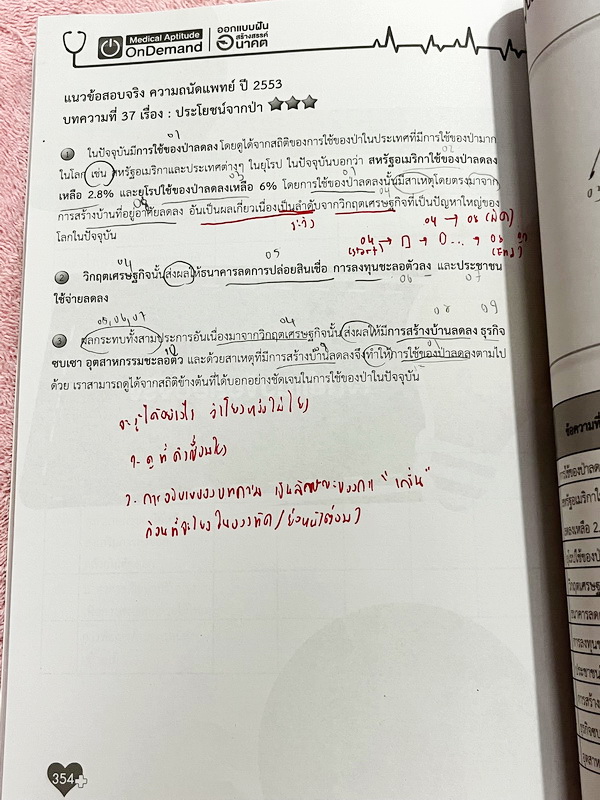 Medical Aptitude
OnDemand
ออกแบบฝัน
สร้างสรรค์
อนาคต
แนวข้อสอบจริง ความถนัดแพทย์ ปี 2553
บทความที่ 37 เรื่อง : ประโยชน์จากป่า
01
1 ในปัจจุบันมีการใช้ของป่าลดลง โดยดูได้จากสถิติของการใช้ของป่าในประเทศที่มีการใช้ของป่ามาก
02
ในโลก เช่น สหรัฐอเมริกาและประเทศต่างๆ ในยุโรป ในปัจจุบันบอกว่า สหรัฐอเมริกาใช้ของป่าลดลง
เหลือ 2.8% และยุโรปใช้ของป่าลดลงเหลือ 6% โดยการใช้ของป่าลดลงนั้นมีสาเหตุโดยตรงมาจาก
การสร้างบ้านที่อยู่อาศัยลดลง อันเป็นผลเกี่ยวเนื่องเป็นลำดับจากวิกฤตเศรษฐกิจที่เป็นปัญหาใหญ่ของ
โลกในปัจจุบัน
04 → 08
04
05
2 วิกฤตเศรษฐกิจนั้นส่งผลให้ธนาคารลดการปล่อยสินเชื่อ การลงทุนชะลอตัวลง และประชาชน
06 07
ใช้จ่ายลดลง
05, 06, 07 04 08 09
3 ผลกระทบทั้งสามประการอันเนื่องมาจากวิกฤตเศรษฐกิจนั้น ส่งผลให้มีการสร้างบ้านลดลง ธุรกิจ
ซบเซา อุตสาหกรรมชะลอตัว และด้วยสาเหตุที่มีการสร้างบ้านลดลงจึงทำให้การใช้ของป่าลดลงตามไป
ด้วย เราสามารถดูได้จากสถิติข้างต้นที่ได้บอกอย่างชัดเจนในการใช้ของป่าในปัจจุบัน
จะรู้ได้อย่างไร ว่าโยงหรือไม่โยง
1. ดูที่คำเชื่อมโยง
2. การอธิบายของบทความ เป็นลักษณะของการ "เกริ่น"
354
ข้อความที่